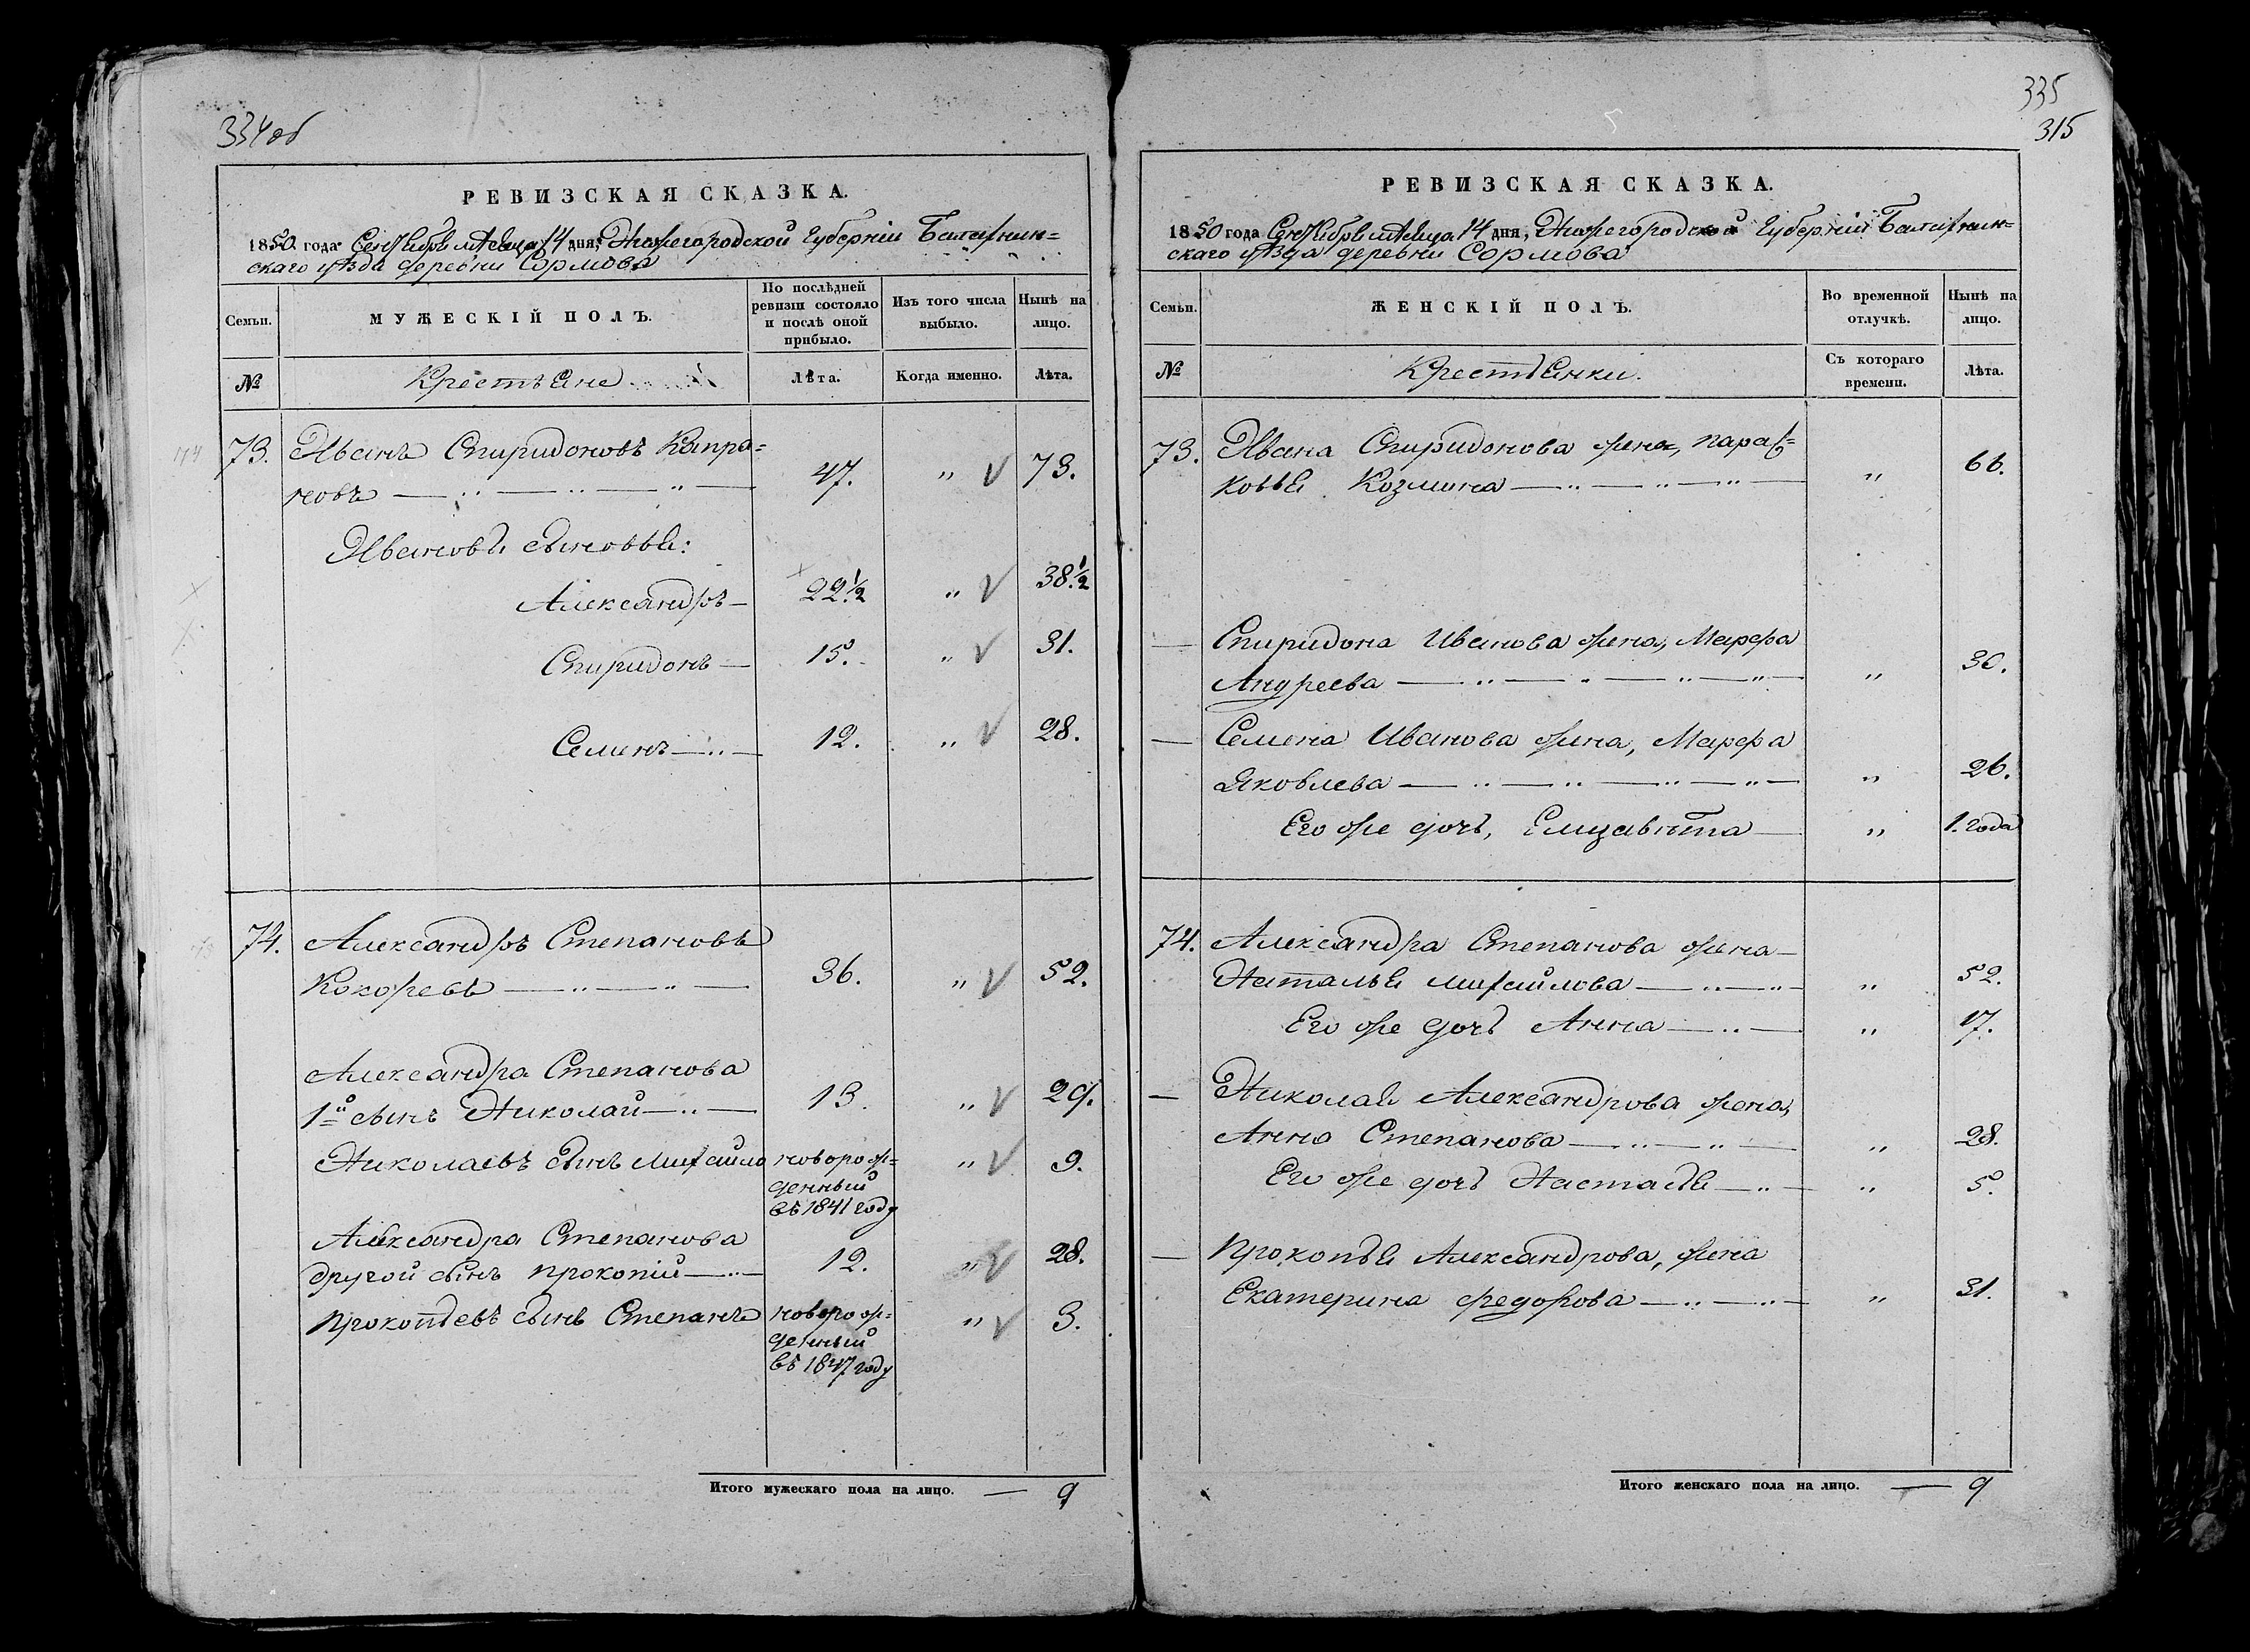 334об
РЕВИЗСКАЯ СКАЗКА.
1850 года Сентября месяца 14 дня, Нижегородской Губерніи Балахнин=
скаго уѣзда деревни Сормова
Семьи.
МУЖЕСКІЙ ПОЛЪ.
По послѣдней ревизіи состояло и послѣ оной прибыло.
Изъ того числа выбыло.
Нынѣ на лицо.
№
Крестьяне
Лѣта.
Когда именно.
Лѣта.
73. Иванъ Спиридоновъ Капра=
новъ 47. " 73.
Ивановы сыновья:
Александръ 22½ " 38.½
Спиридонъ 15. " 31.
Семенъ 12. " 28.
74. Александръ Степановъ
Кокоревъ 36. " 52.
Александра Степанова
1й сынъ Николай 13. " 29.
Николаевъ сынъ Михайло новорож= " 9.
денный
въ 1841 году
Александра Степанова
другой сынъ Прокопій 12. " 28.
Прокопьевъ сынъ Степанъ новорож= " 3.
денный
въ 1847 году
Итого мужескаго пола на лицо. — 9
335
315
РЕВИЗСКАЯ СКАЗКА.
1850 года Сентября месяца 14 дня, Нижегородской Губерніи Балахнин=
скаго уѣзда деревни Сормова
Семьи.
ЖЕНСКІЙ ПОЛЪ.
Во временной отлучкѣ.
Нынѣ на лицо.
№
Крестьянки.
Съ котораго времени.
Лѣта.
73. Ивана Спиридонова жена, Парас=
ковья Козмина " 66.
— Спиридона Иванова жена, Марфа
Андреева " 30.
— Семена Иванова жена, Марфа
Яковлева " 26.
Его же дочь, Елизавѣта " 1. года
74. Александра Степанова жена
Наталья Михайлова " 52.
Его же дочь Анна " 17.
— Николая Александрова жена,
Анна Степанова " 28.
Его же дочь Настасья " 5.
— Прокопья Александрова, жена
Екатерина Федорова " 31.
Итого женскаго пола на лицо. — 9